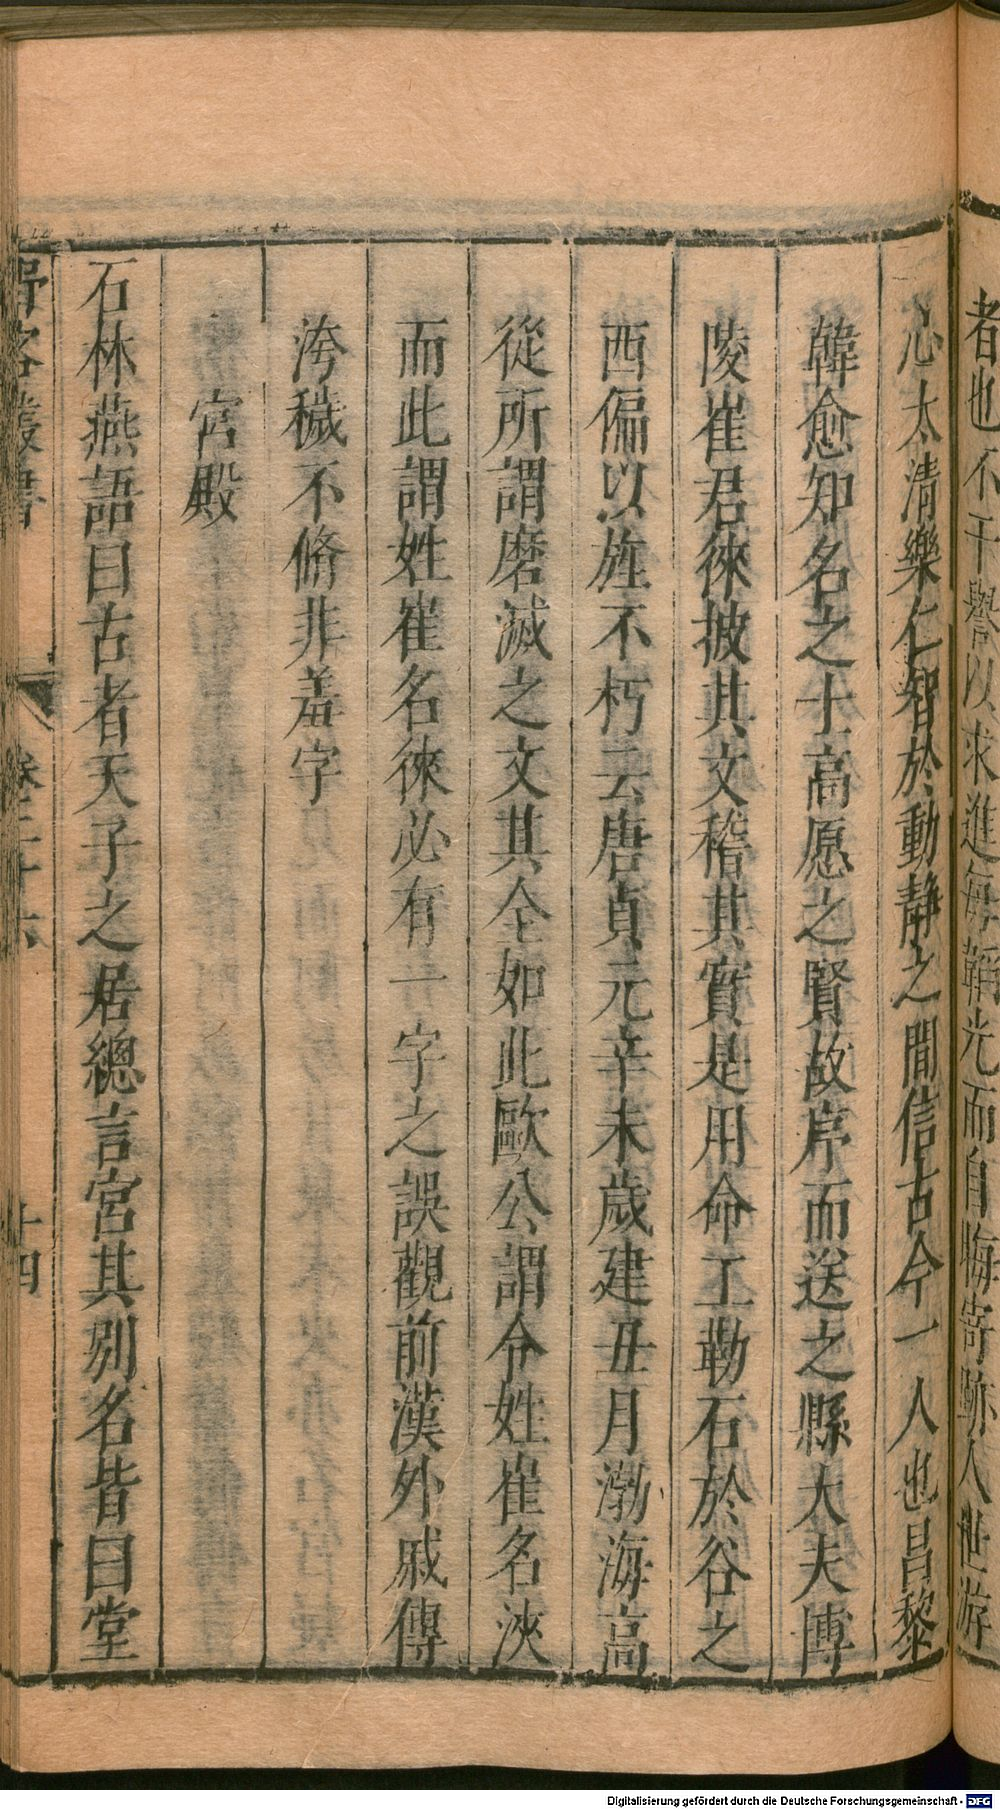 者也不干譽以求進每韜光而自晦寄跡人世游
心太清樂仁智於動靜之間信古今一人也昌黎
韓愈知名之士高愿之賢故序而送之縣大夫博
陵崔君徠披其文稽其實是用命工勒石於谷之
西偏以旌不朽云唐貞元辛未歲建丑月渤海高
從所謂磨滅之文其全如此歐公謂令姓崔名浹
而此謂姓崔名徠必有一字之誤觀前漢外戚傳
洿穢不脩非羞字
宮殿
石林燕語曰古者天子之居總言宮其別名皆曰堂
野客叢書
卷二十六
十四
Digitalisierung gefördert durch die Deutsche Forschungsgemeinschaft - DFG